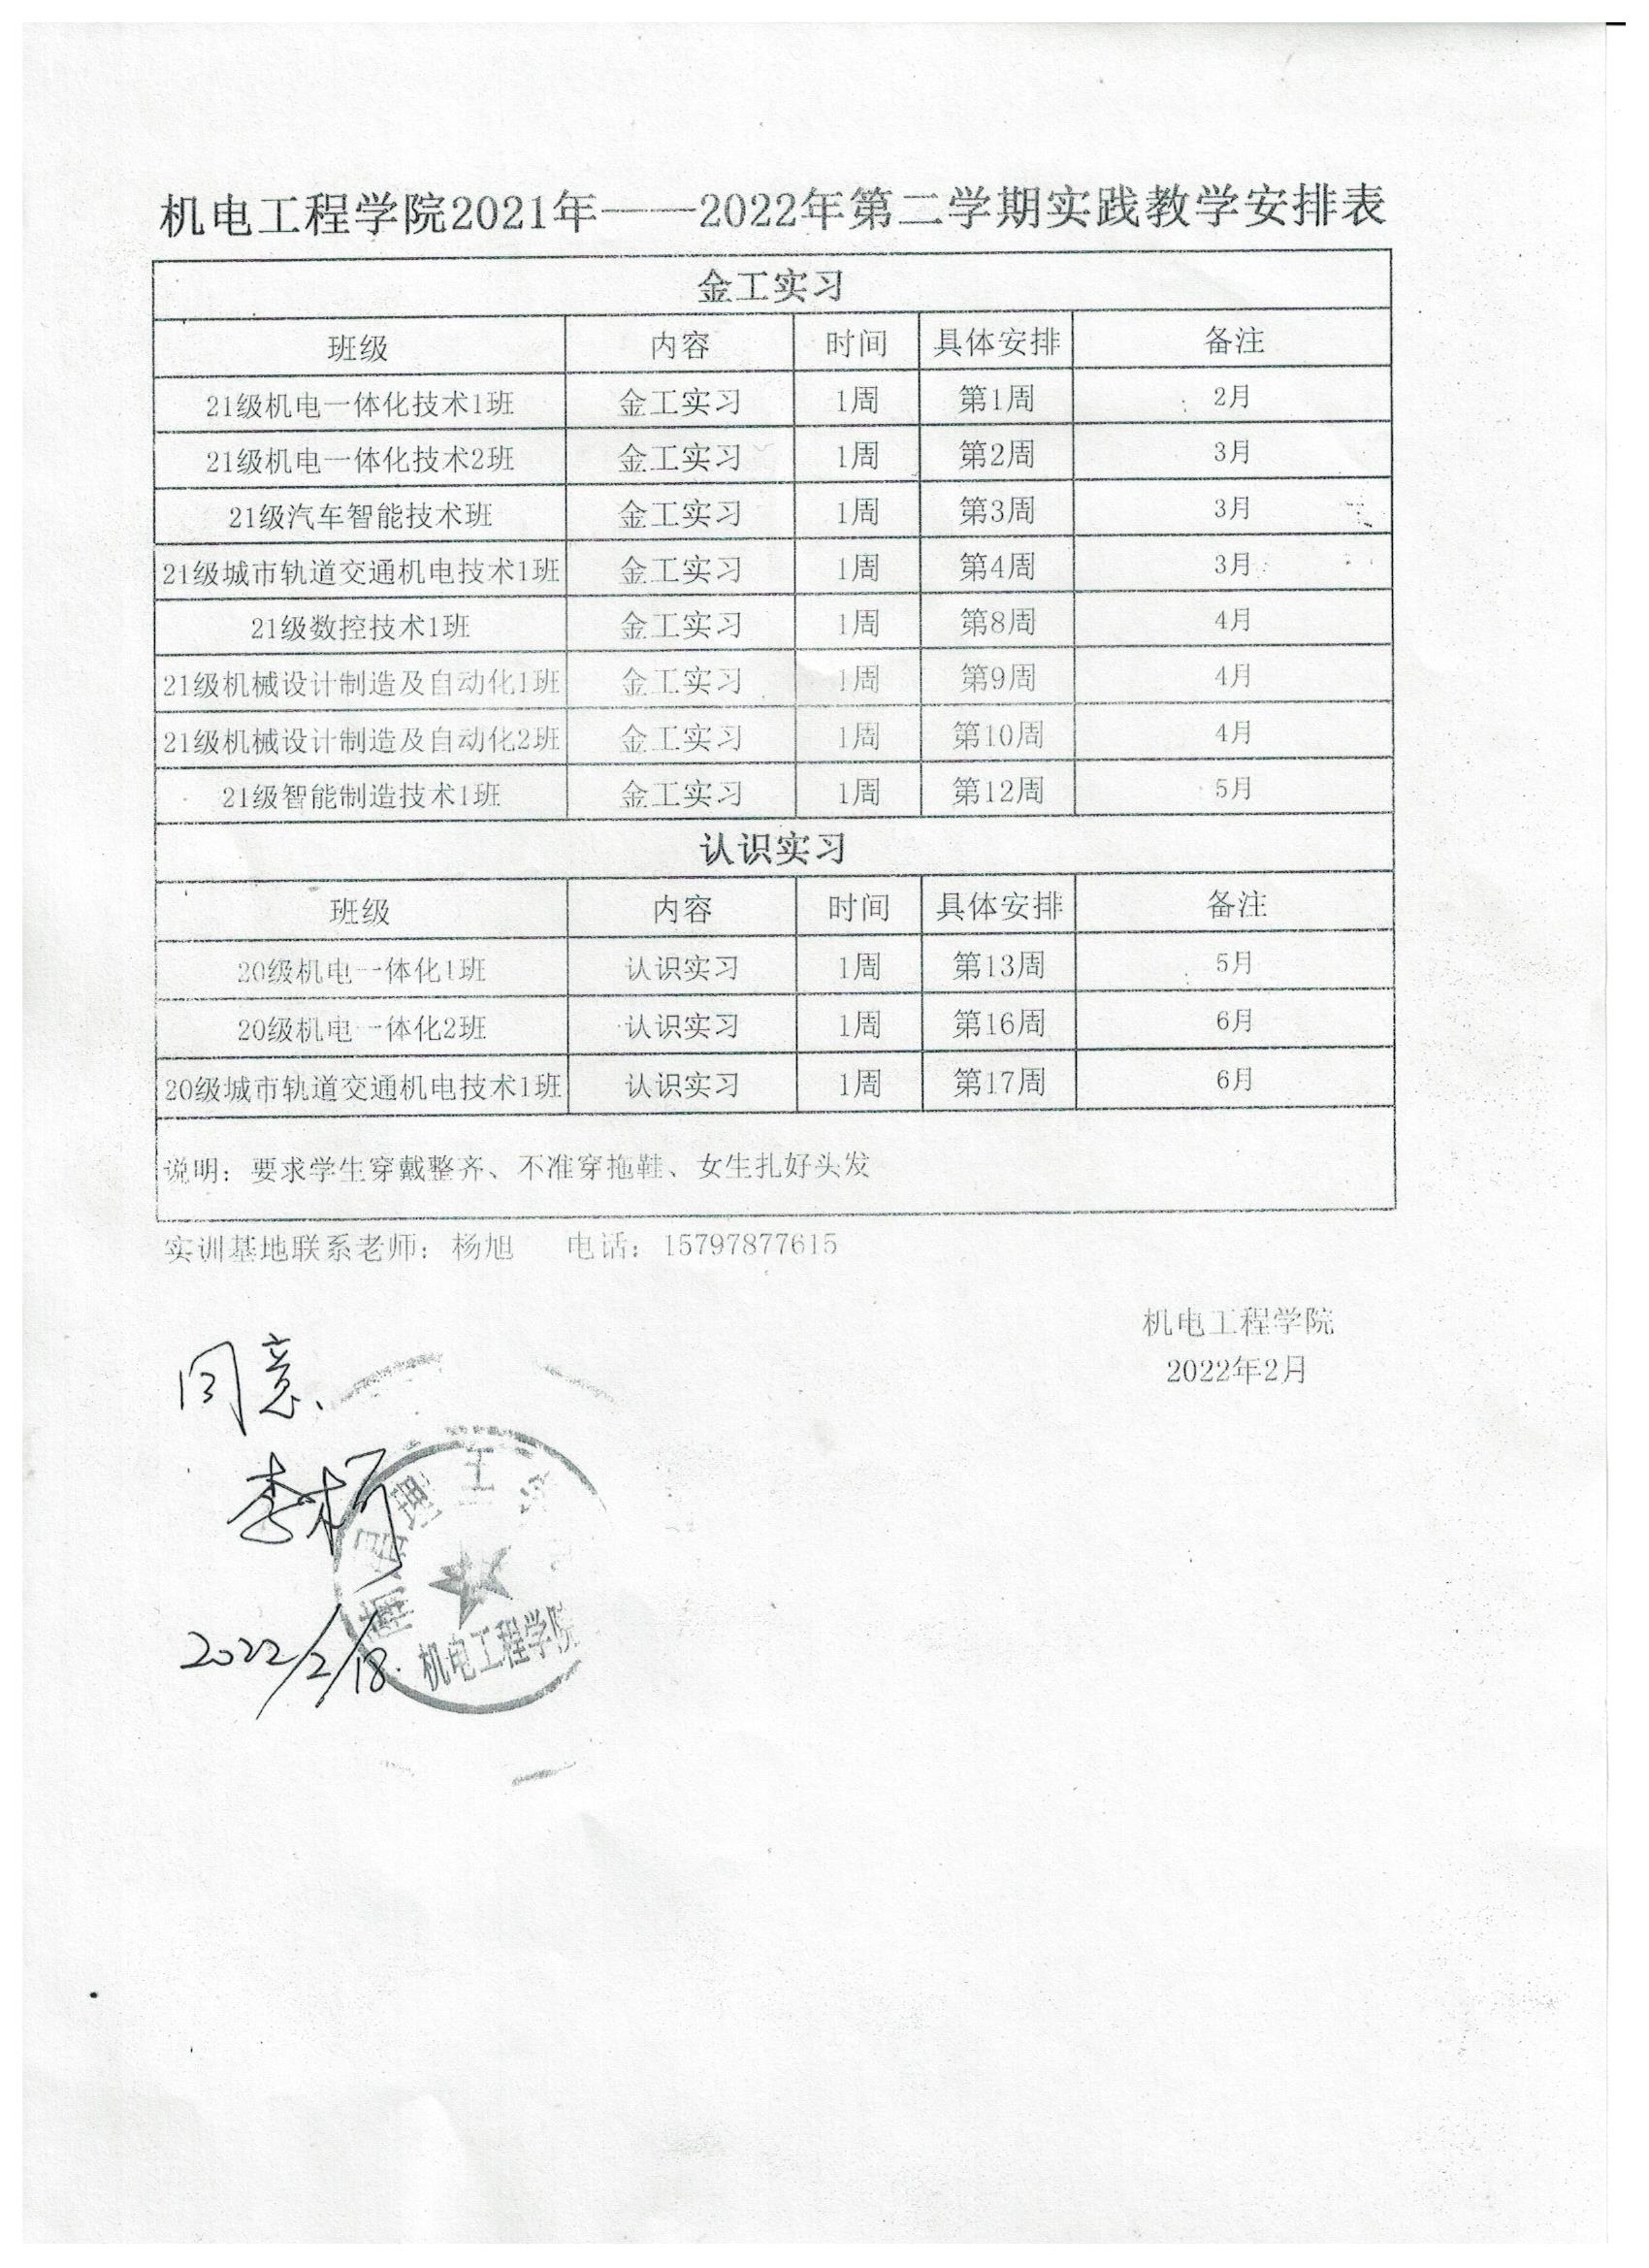 机电工程学院2021年——2022年第二学期实践教学安排表
金工实习
班级 内容 时间 具体安排 备注
21级机电一体化技术1班 金工实习 1周 第1周 2月
21级机电一体化技术2班 金工实习 1周 第2周 3月
21级汽车智能技术班 金工实习 1周 第3周 3月
21级城市轨道交通机电技术1班 金工实习 1周 第4周 3月
21级数控技术1班 金工实习 1周 第8周 4月
21级机械设计制造及自动化1班 金工实习 1周 第9周 4月
21级机械设计制造及自动化2班 金工实习 1周 第10周 4月
21级智能制造技术1班 金工实习 1周 第12周 5月
认识实习
班级 内容 时间 具体安排 备注
20级机电一体化1班 认识实习 1周 第13周 5月
20级机电一体化2班 认识实习 1周 第16周 6月
20级城市轨道交通机电技术1班 认识实习 1周 第17周 6月
说明：要求学生穿戴整齐、不准穿拖鞋、女生扎好头发
实训基地联系老师：杨旭 电话：15797877615
机电工程学院
2022年2月
同意、
李柯
2022/2/18.
理工
机电工程学院